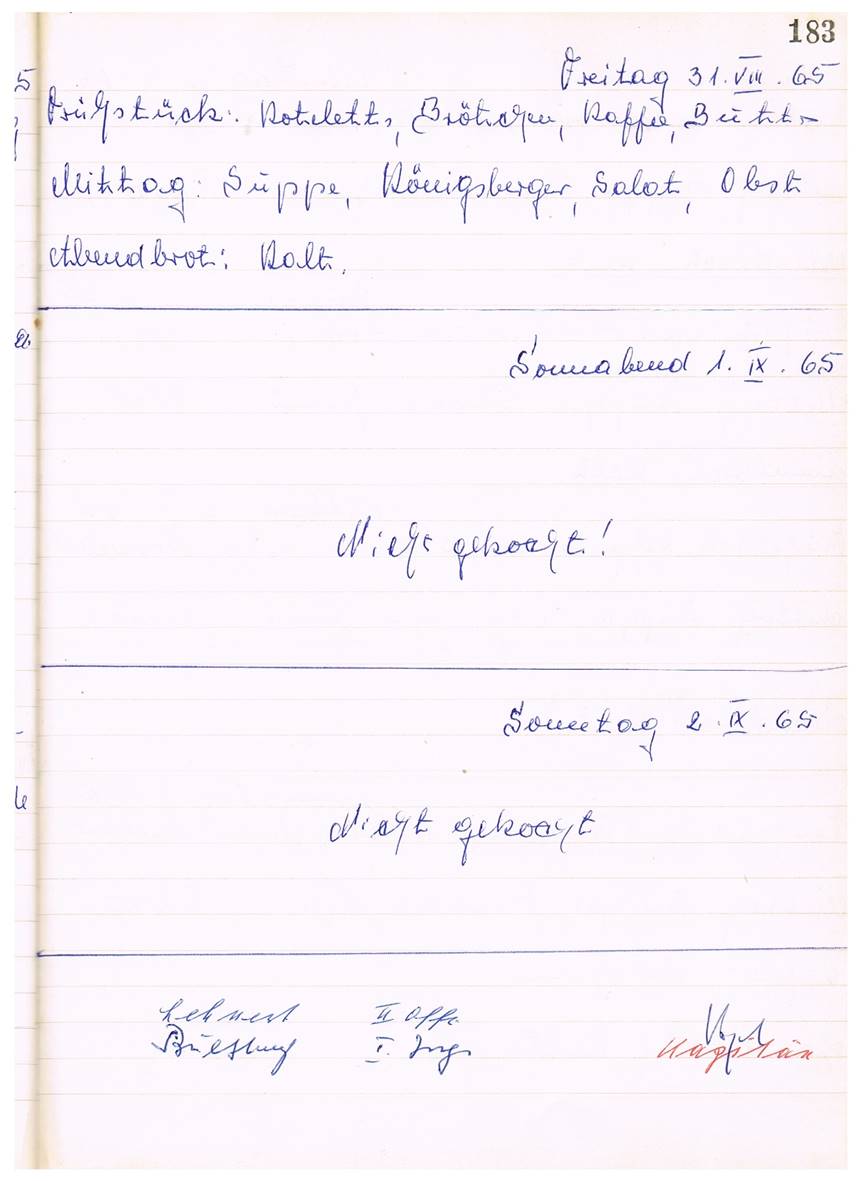 183
Freitag 31. VIII. 65
Frühstück: Koteletts, Brötchen, Kaffee, Butter
Mittag: Suppe, Königsberger, Salat, Obst
Abendbrot: Kalt.
Sonnabend 1. IX. 65
Nicht gekocht!
Sonntag 2. IX. 65
Nicht gekocht
Lehnert II Offz.
I. Ing.
Kapitän